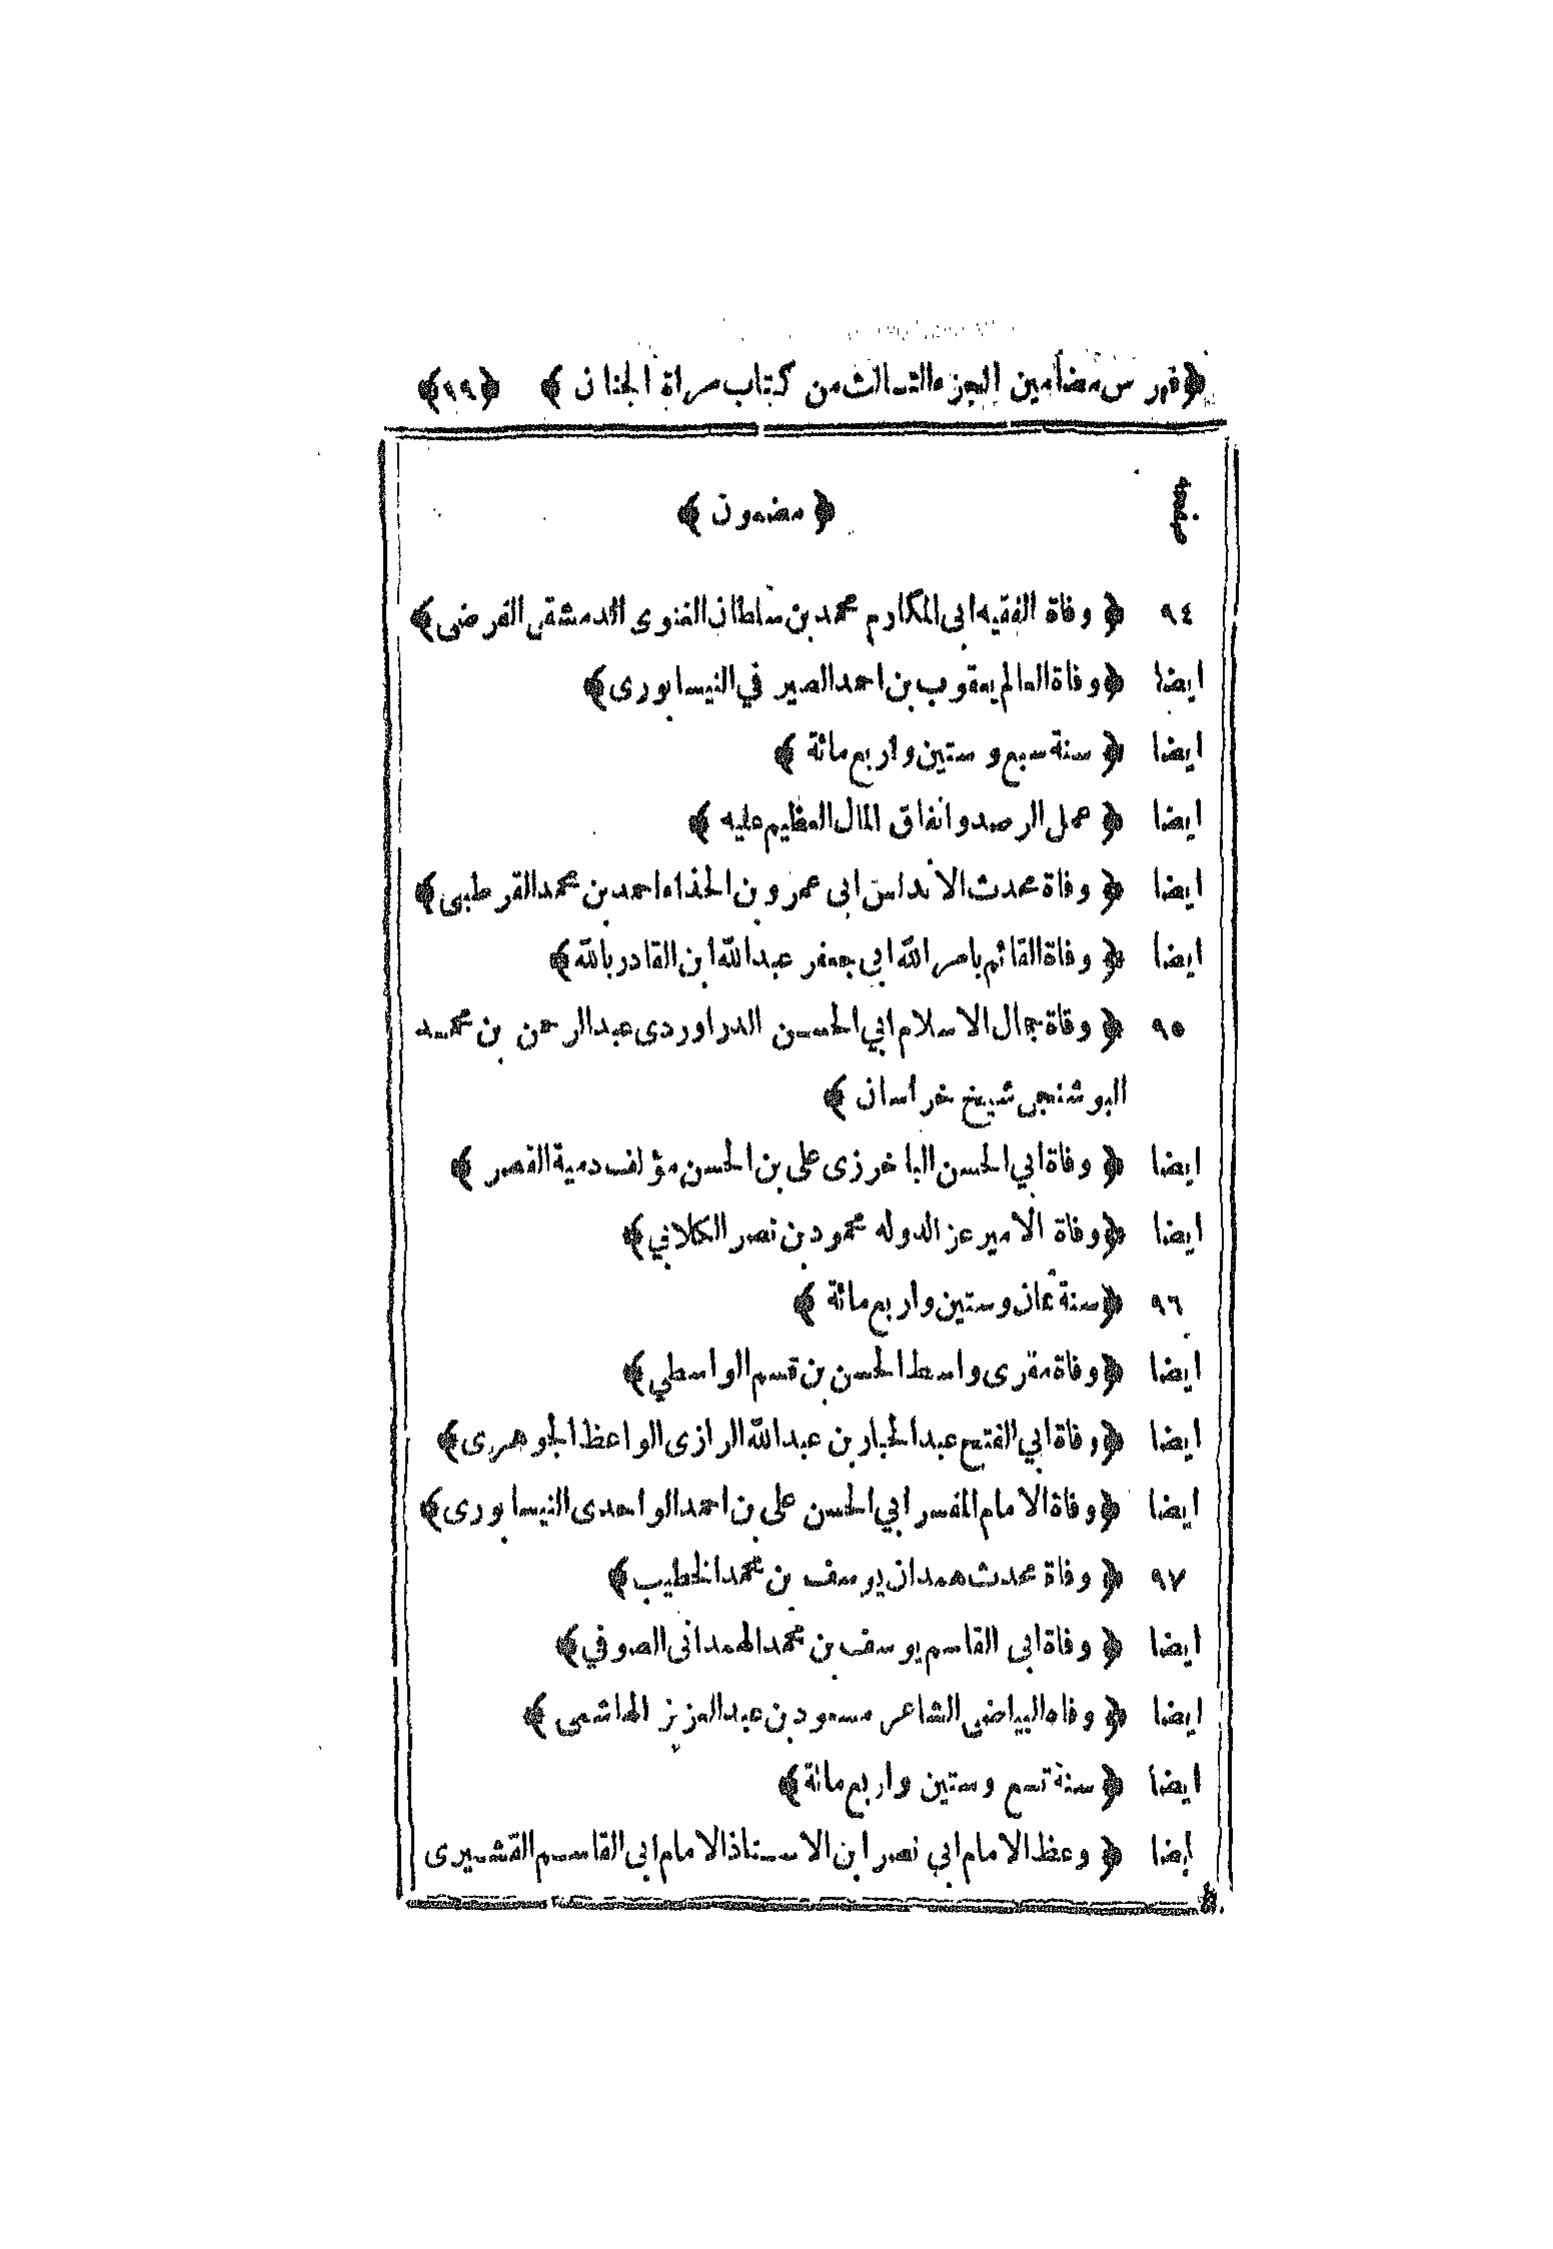 ﴿ فهرس مضامين الجزء الثالث من كتاب مرأة الجنان ﴾ ﴿ ١٩ ﴾
صفحة ﴿ مضمون ﴾
٩٤ ﴿ وفاة الفقيه ابى المكارم محمد بن سلطان الغنوى الدمشقى الفرضى ﴾
ايضا ﴿ وفاة العالم يعقوب بن احمد الصير في النيسابورى ﴾
ايضا ﴿ سنة سبع و ستين و اربع مائة ﴾
ايضا ﴿ عمل الرصد و انفاق المال العظيم عليه ﴾
ايضا ﴿ وفاة محدث الاندلس ابى عمر و بن الحذاء احمد بن محمد القرطبى ﴾
ايضا ﴿ وفاة القائم بامر الله ابي جعفر عبد الله ابن القادر بالله ﴾
٩٥ ﴿ وفاة جمال الاسلام ابي الحسن الدراوردى عبد الرحمن بن محمد
البوشنجى شيخ خراسان ﴾
ايضا ﴿ وفاة ابي الحسن الباخرزى على بن الحسن مؤلف دمية القصر ﴾
ايضا ﴿ وفاة الامير عز الدوله محمود بن نصر الكلابي ﴾
٩٦ ﴿ سنة ثمان و ستين و اربع مائة ﴾
ايضا ﴿ وفاة مقرى واسط الحسن بن قسم الواسطي ﴾
ايضا ﴿ وفاة ابي الفتح عبد الجبار بن عبد الله الرازى الواعظ الجوهرى ﴾
ايضا ﴿ وفاة الامام المفسر ابي الحسن على بن احمد الواحدى النيسابورى ﴾
٩٧ ﴿ وفاة محدث همدان يوسف بن محمد الخطيب ﴾
ايضا ﴿ وفاة ابى القاسم يوسف بن محمد الهمدانى الصوفي ﴾
ايضا ﴿ وفاه البياضى الشاعر مسعود بن عبد العزيز الهاشمى ﴾
ايضا ﴿ سنة تسع و ستين و اربع مائة ﴾
ايضا ﴿ وعظ الامام ابي نصر ابن الاستاذ الامام ابى القاسم القشيرى